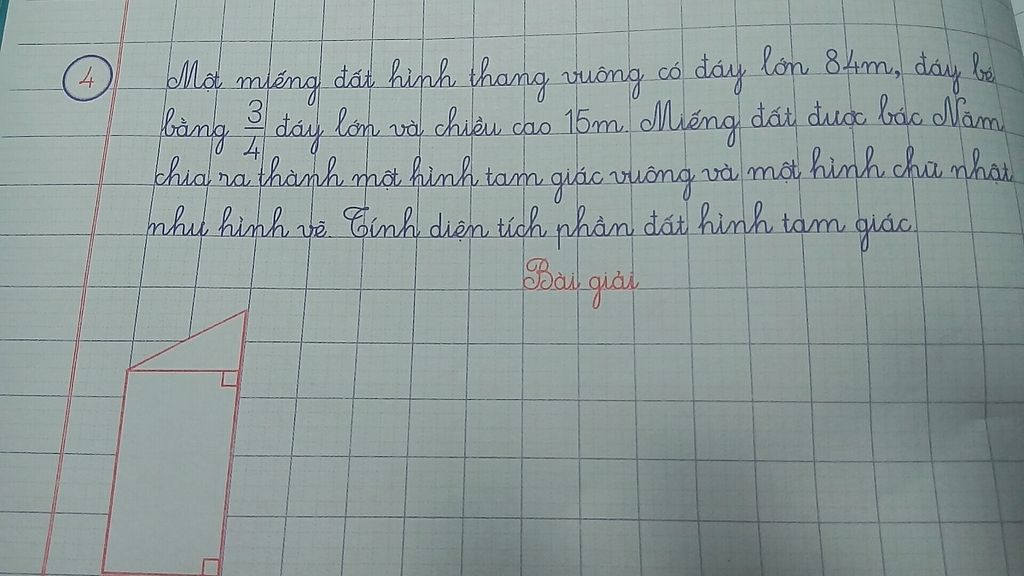 4 Một miếng đất hình thang vuông có đáy lớn 84m, đáy bé
bằng 3/4 đáy lớn và chiều cao 15m. Miếng đất được bác Năm
chia ra thành một hình tam giác vuông và một hình chữ nhật
như hình vẽ. Tính diện tích phần đất hình tam giác.
Bài giải